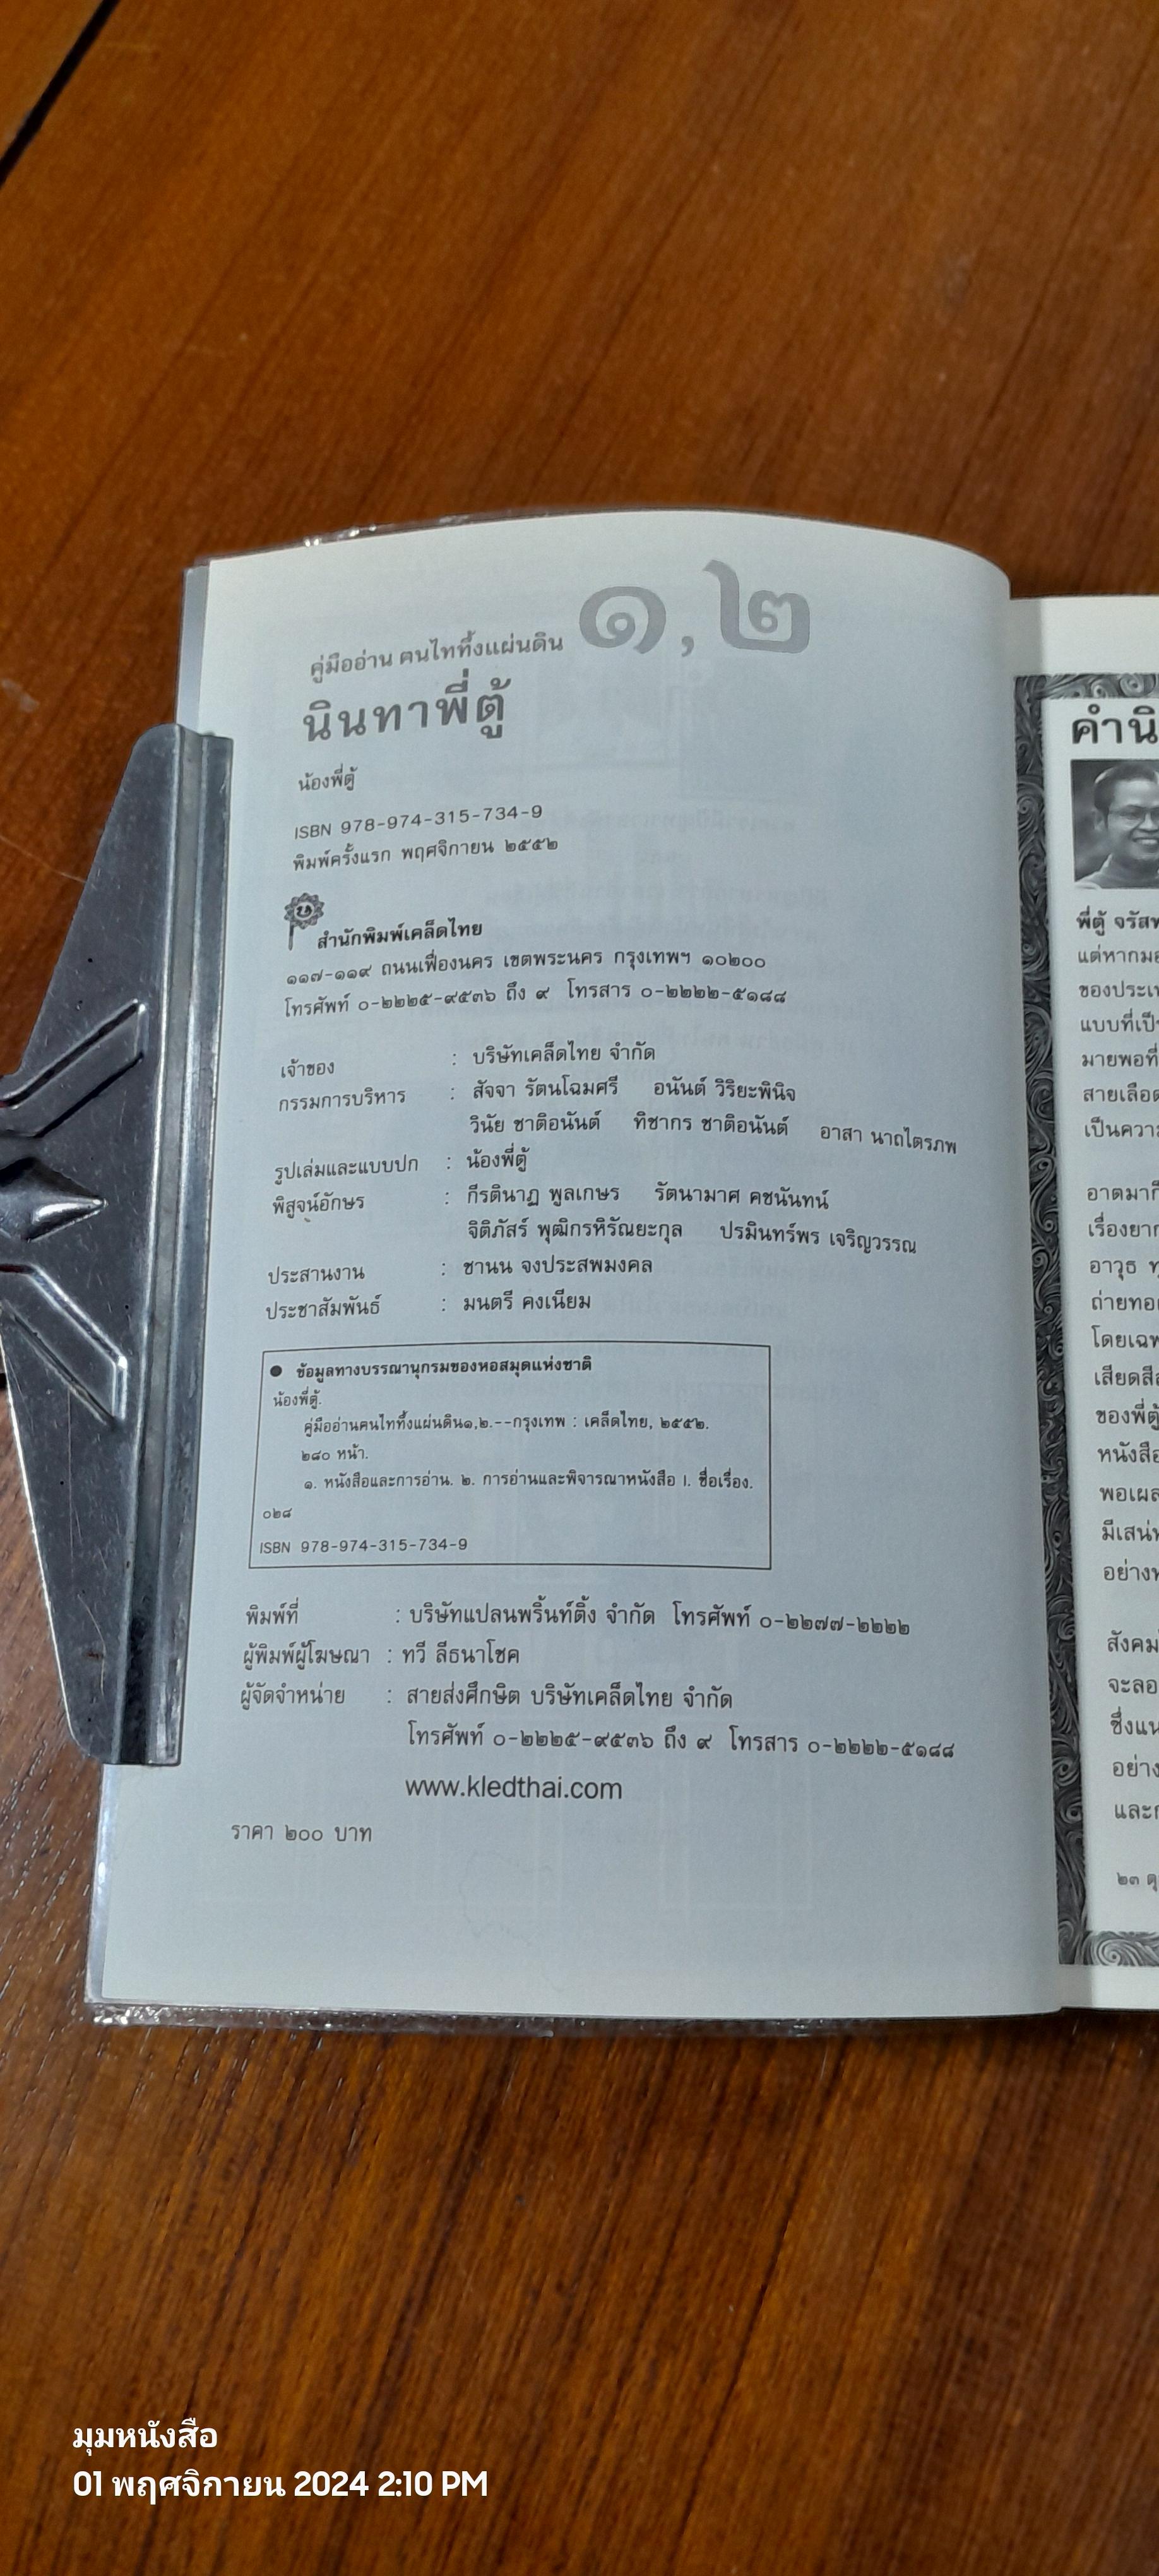 คู่มืออ่าน ฅนไททิ้งแผ่นดิน ๑,๒
นินทาพี่ตู้
น้องพี่ตู้
ISBN 978-974-315-734-9
พิมพ์ครั้งแรก พฤศจิกายน ๒๕๕๒
สำนักพิมพ์เคล็ดไทย
๑๑๗-๑๑๙ ถนนเฟื่องนคร เขตพระนคร กรุงเทพฯ ๑๐๒๐๐
โทรศัพท์ ๐-๒๒๒๕-๙๕๓๖ ถึง ๙ โทรสาร ๐-๒๒๒๒-๕๑๘๘
เจ้าของ : บริษัทเคล็ดไทย จำกัด
กรรมการบริหาร : สัจจา รัตนโฉมศรี อนันต์ วิริยะพินิจ
วินัย ชาติอนันต์ ทิชากร ชาติอนันต์ อาสา นาถไตรภพ
รูปเล่มและแบบปก : น้องพี่ตู้
พิสูจน์อักษร : กีรตินาฏ พูลเกษร รัตนามาศ คชนันทน์
จิติภัสร์ พุฒิกรหิรัณยะกุล ปรมินทร์พร เจริญวรรณ
ประสานงาน : ชานน จงประสพมงคล
ประชาสัมพันธ์ : มนตรี คงเนียม
● ข้อมูลทางบรรณานุกรมของหอสมุดแห่งชาติ
น้องพี่ตู้.
คู่มืออ่านฅนไททิ้งแผ่นดิน๑,๒.--กรุงเทพ : เคล็ดไทย, ๒๕๕๒.
๒๘๐ หน้า.
๑. หนังสือและการอ่าน. ๒. การอ่านและพิจารณาหนังสือ I. ชื่อเรื่อง.
๐๒๘
ISBN 978-974-315-734-9
พิมพ์ที่ : บริษัทแปลนพริ้นท์ติ้ง จำกัด โทรศัพท์ ๐-๒๒๗๗-๒๒๒๒
ผู้พิมพ์ผู้โฆษณา : ทวี ลีธนาโชค
ผู้จัดจำหน่าย : สายส่งศึกษิต บริษัทเคล็ดไทย จำกัด
โทรศัพท์ ๐-๒๒๒๕-๙๕๓๖ ถึง ๙ โทรสาร ๐-๒๒๒๒-๕๑๘๘
www.kledthai.com
ราคา ๒๐๐ บาท
พี่ตู้
ของ
แบบที่
เรื่อง
อาวุธ
ของพี่ตู้
อย่าง
๒๓
มุมหนังสือ
01 พฤศจิกายน 2024 2:10 PM